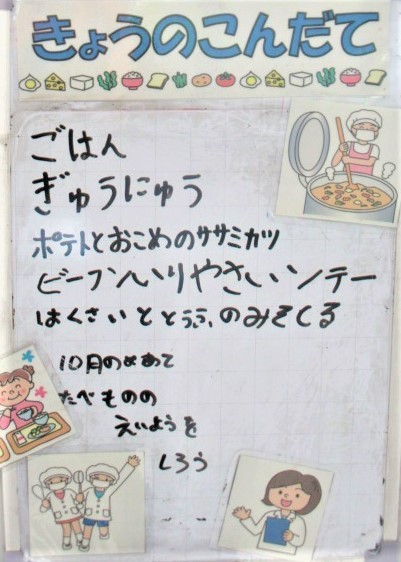 きょうのこんだて
ごはん
ぎゅうにゅう
ポテトとおこめのササミカツ
ビーフンいりやさいソテー
はくさいととうふのみそしる
10月のめあて
たべものの
えいようを
しろう